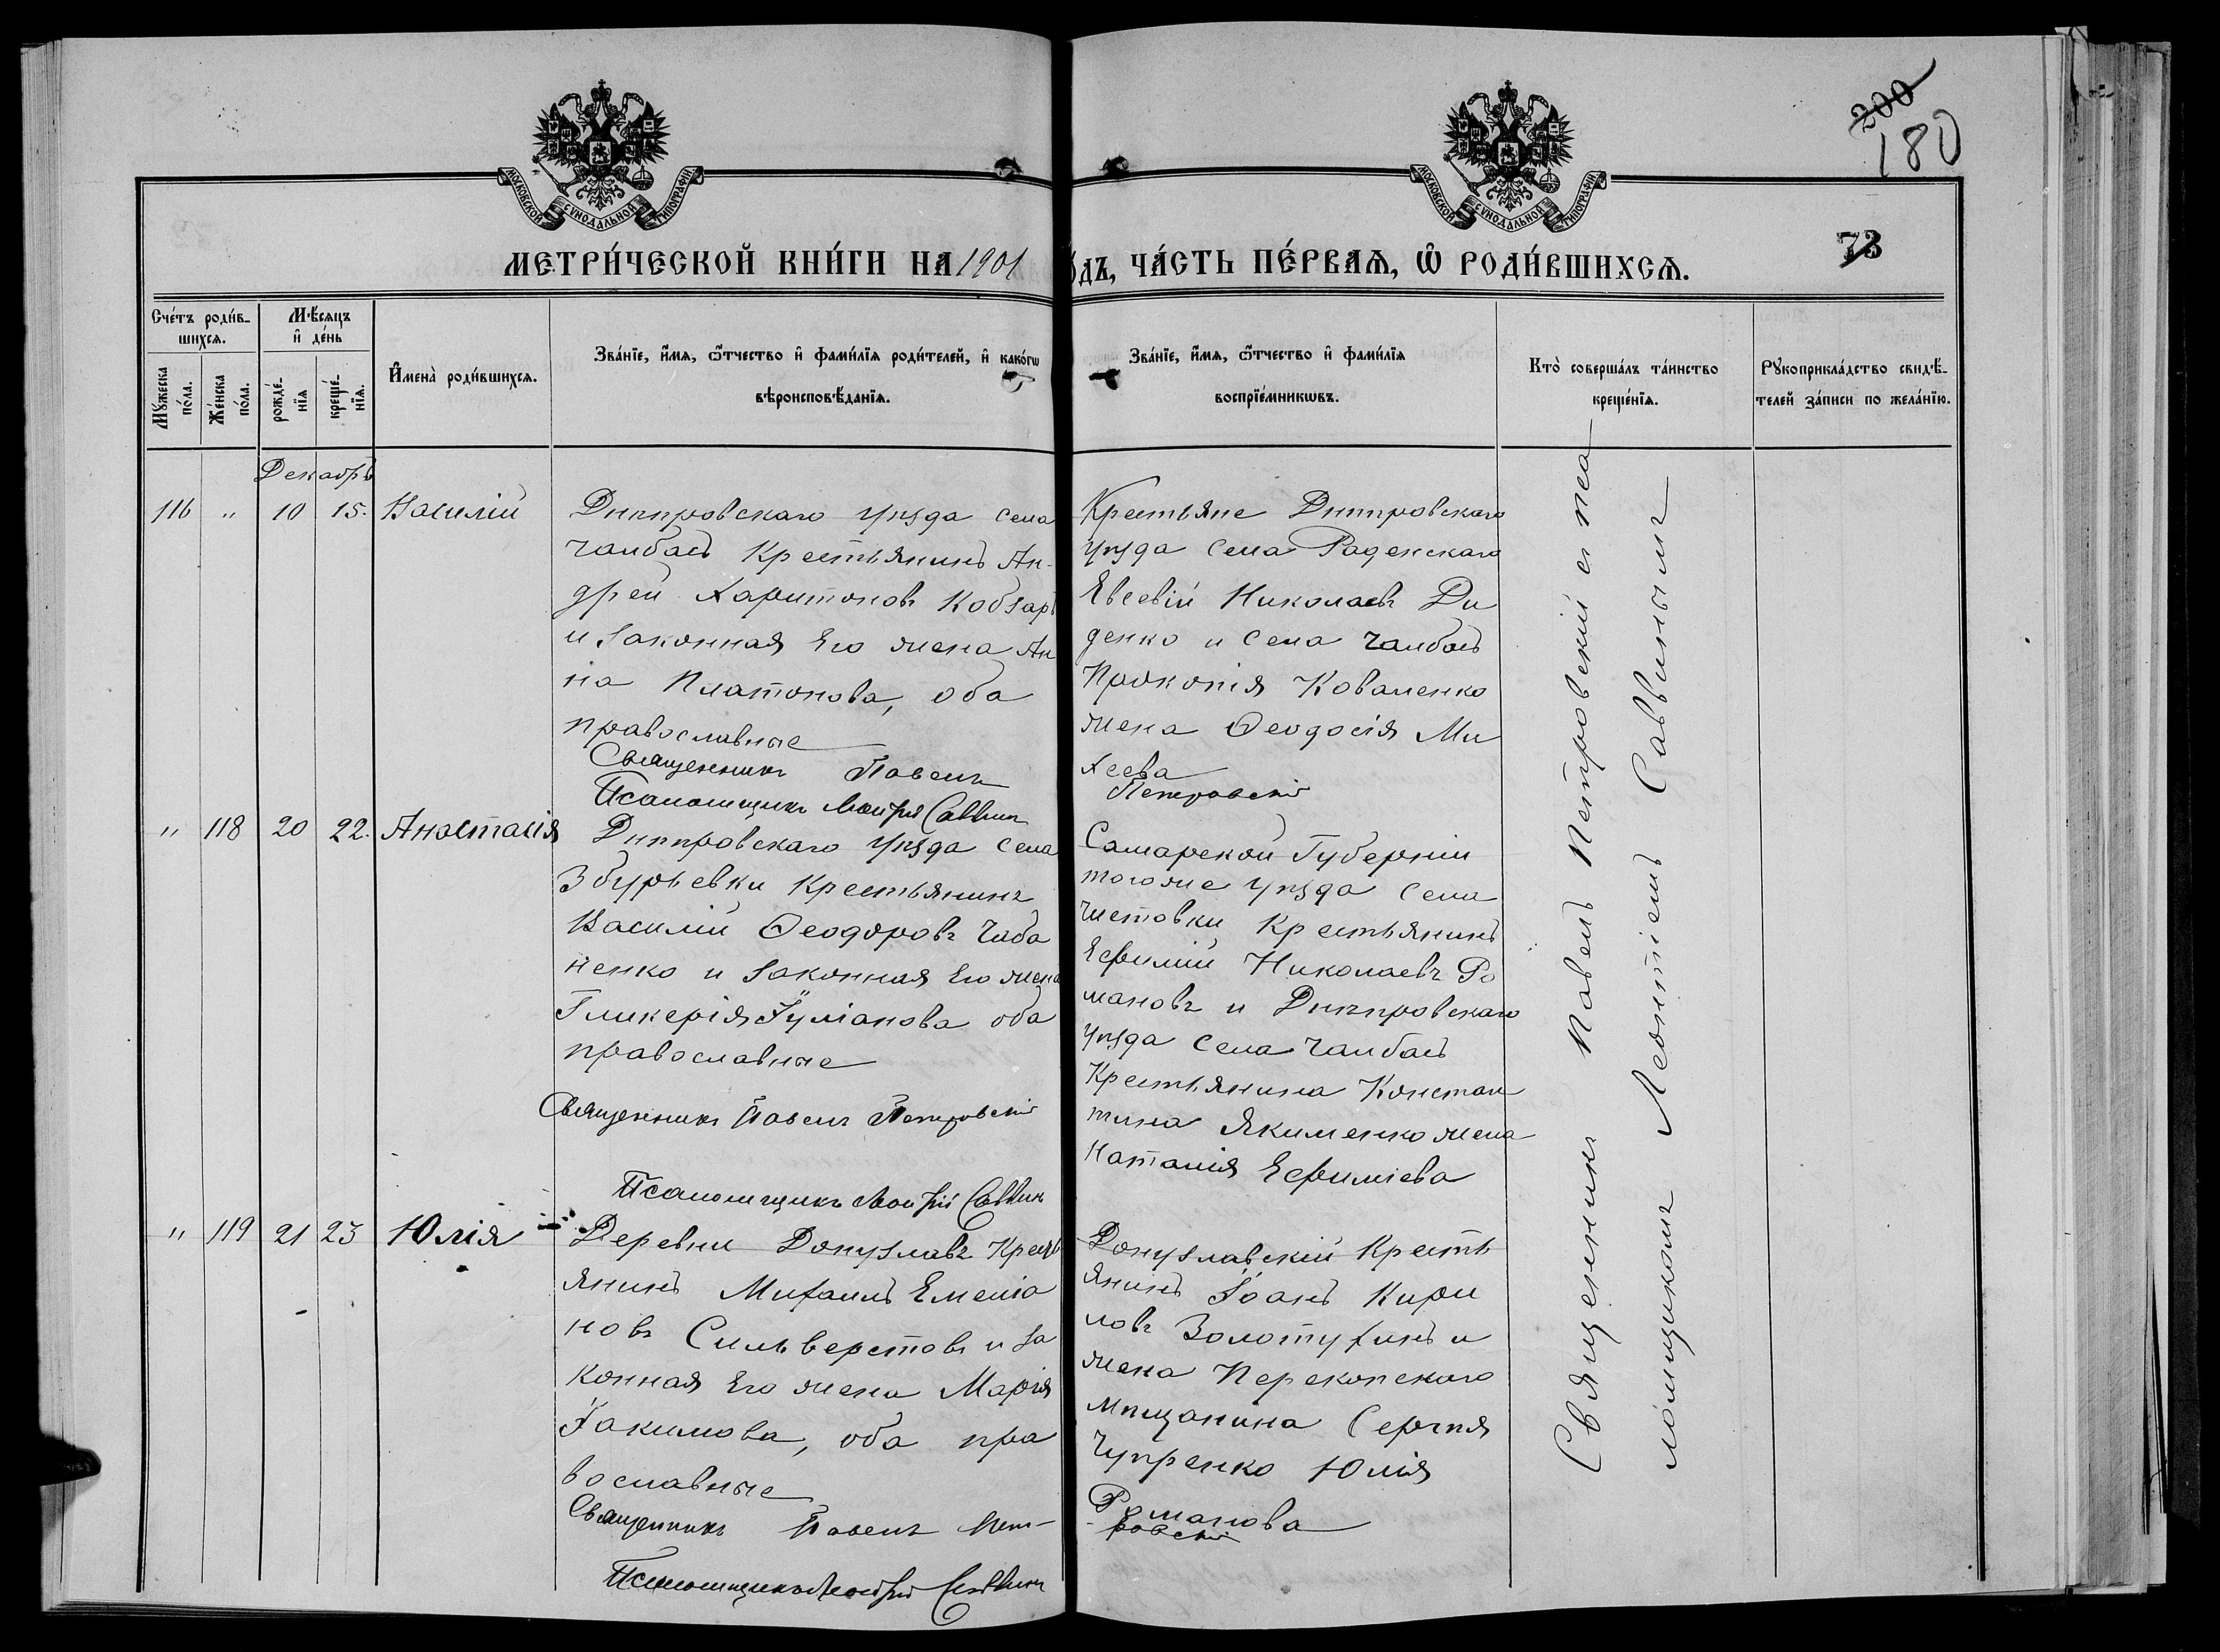 200
180
МОСКОВСКОЙ СѴНОДАЛЬНОЙ ТИПОГРАФІИ
МОСКОВСКОЙ СѴНОДАЛЬНОЙ ТИПОГРАФІИ
73
МЕТРИ́ЧЕСКОЙ КНИ́ГИ НА 1901
о́дъ, ЧА́СТЬ ПЕ́РВАѦ, Ѽ РОДИ́ВШИХСѦ.
Сче́тъ роди́в-
шихсѧ.
Мꙋ́жеска по́ла.
Же́нска по́ла.
Мѣ́сѧцъ
и҆ де́нь
рожде́-
нїѧ
креще́-
нїѧ.
И҆мена̀ роди́вшихсѧ.
Зва́нїе, и҆́мѧ, ѻ҆́тчество и҆ фами́лїѧ роди́телей, и҆ како́гѡ
вѣроисповѣ́данїѧ.
Зва́нїе, и҆́мѧ, ѻ҆́тчество и҆ фами́лїѧ
воспрїе́мникѡвъ.
Кто̀ соверша́лъ та́инство
креще́нїѧ.
Рꙋкоприкла́дство свидѣ́-
телей за́писи по жела́нїю.
Декабрь
116 " 10 15. Василій
Днѣпровскаго уѣзда села
Чалбасъ Крестьянинъ Ан-
дрей Харитоновъ Кобзарь
и законная его жена Ан
на Платонова, оба
православные
Священникъ Павелъ
Псаломщикъ Леонтій Саввин
Крестьяне Днѣпровскаго
уѣзда села Раденскаго
Евсевій Николаевъ Ди
денко и села Чалбасъ
Прокопія Коваленко
жена Ѳеодосія Ми
хеева
Петровскій
" 118 20 22. Анастасія
Днѣпровскаго уѣзда села
Збурьевки Крестьянинъ
Василій Ѳеодоровъ Чаба
ненко и законная его жена
Гликерія Іуліанова оба
православные
Священникъ Павелъ Петровскій
Псаломщикъ Леонтій Саввин
Самарской Губерніи
тогоже уѣзда села
Чистовки Крестьянинъ
Ефимій Николаевъ Ро
мановъ и Днѣпровскаго
уѣзда села Чалбасъ
Крестьянина Констан
тина Якименко жена
Наталія Ефиміева
" 119 21 23 Юлія
Деревни Донузлавъ Кресть
янинъ Михаилъ Емеліа
новъ Сильверстовъ и за
конная его жена Марія
Іакимова, оба пра
вославные
Священникъ Павелъ Пет-
Псаломщикъ Леонтій Саввин
Донузлавскій Кресть
янинъ Іоанъ Кири
ловъ Золотухинъ и
жена Перекопскаго
мѣщанина Сергія
Чупренко Юлія
Романова
-ровскій
Священникъ Павелъ Петровскій с пса
ломщикомъ Леонтіемъ Саввинымъ